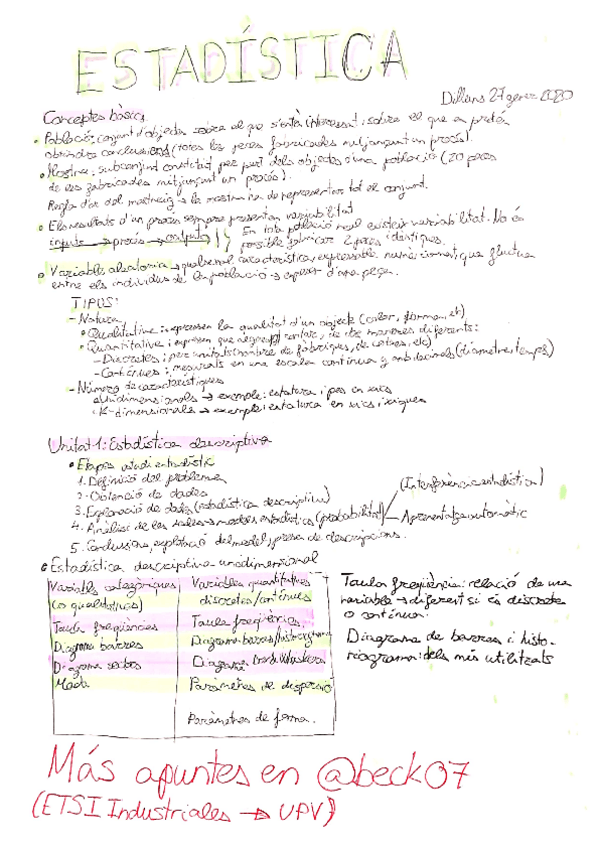 ESTADÍSTICA
Dilluns 27 gener 2020
Conceptes bàsics
• Població: conjunt d'objectes sobre el que s'està interessant; sobre el que es pretén
obtindre conclusions (totes les peces fabricades mitjançant un procés).
• Mostra: subconjunt constituït per part dels objectes d'una població (20 peces
de les fabricades mitjançant un procés).
Regla d'or del mostreig → la mostra ha de representar tot el conjunt.
• Els resultats d'un procés sempre presenten variabilitat
inputs → procés → outputs
En tota població real existeix variabilitat. No és
possible fabricar 2 peces idèntiques.
• Variable aleatoria → qualsevol característica, expressable numèricament que fluctua
entre els individus de la població → espesor d'una peça.
TIPOS:
- Natura
• Qualitative: expressen la qualitat d'un objecte (color, forma, etc)
• Quantitative: expressen que es pot contar, de dos maneres diferents:
- Discretes: per unitats (nombre de fàbriques, de cotxes, etc)
- Contínues: mesurats en una escala contínua y amb decimals (diametre, temps)
- Número de característiques
• Unidimensionals → exemple: estatura i pes en xics
• K-dimensionals → exemple: estatura en xics i xiques
Unitat 1: Estadística descriptiva
• Etapes estudi estadístic
1. Definició del problema
2. Obtenció de dades
3. Exploració de dades (estadística descriptiva)
(Interferència estadística)
4. Anàlisi de les dades models estadístics (probabilitat)
Aprenentatge automàtic
5. Conclusions, explotació del model, presa de descripcions.
• Estadística descriptiva unidimensional
Variables categòriques
(o qualitatives)
Taula freqüències
Diagrama barres
Diagrama sectors
Moda
Variables quantitatives
discretes/contínues
Taula freqüències
Diagrama barres/histograma
Diagrama Box-Whiskers
Paràmetres de dispersió
Paràmetres de forma.
Taula freqüència: relació de una
variable → diferent si és discreta
o contínua.
Diagrama de barres i histo-
riagrama: dels més utilitzats
Más apuntes en @beck07
(ETSI Industriales → UPV)